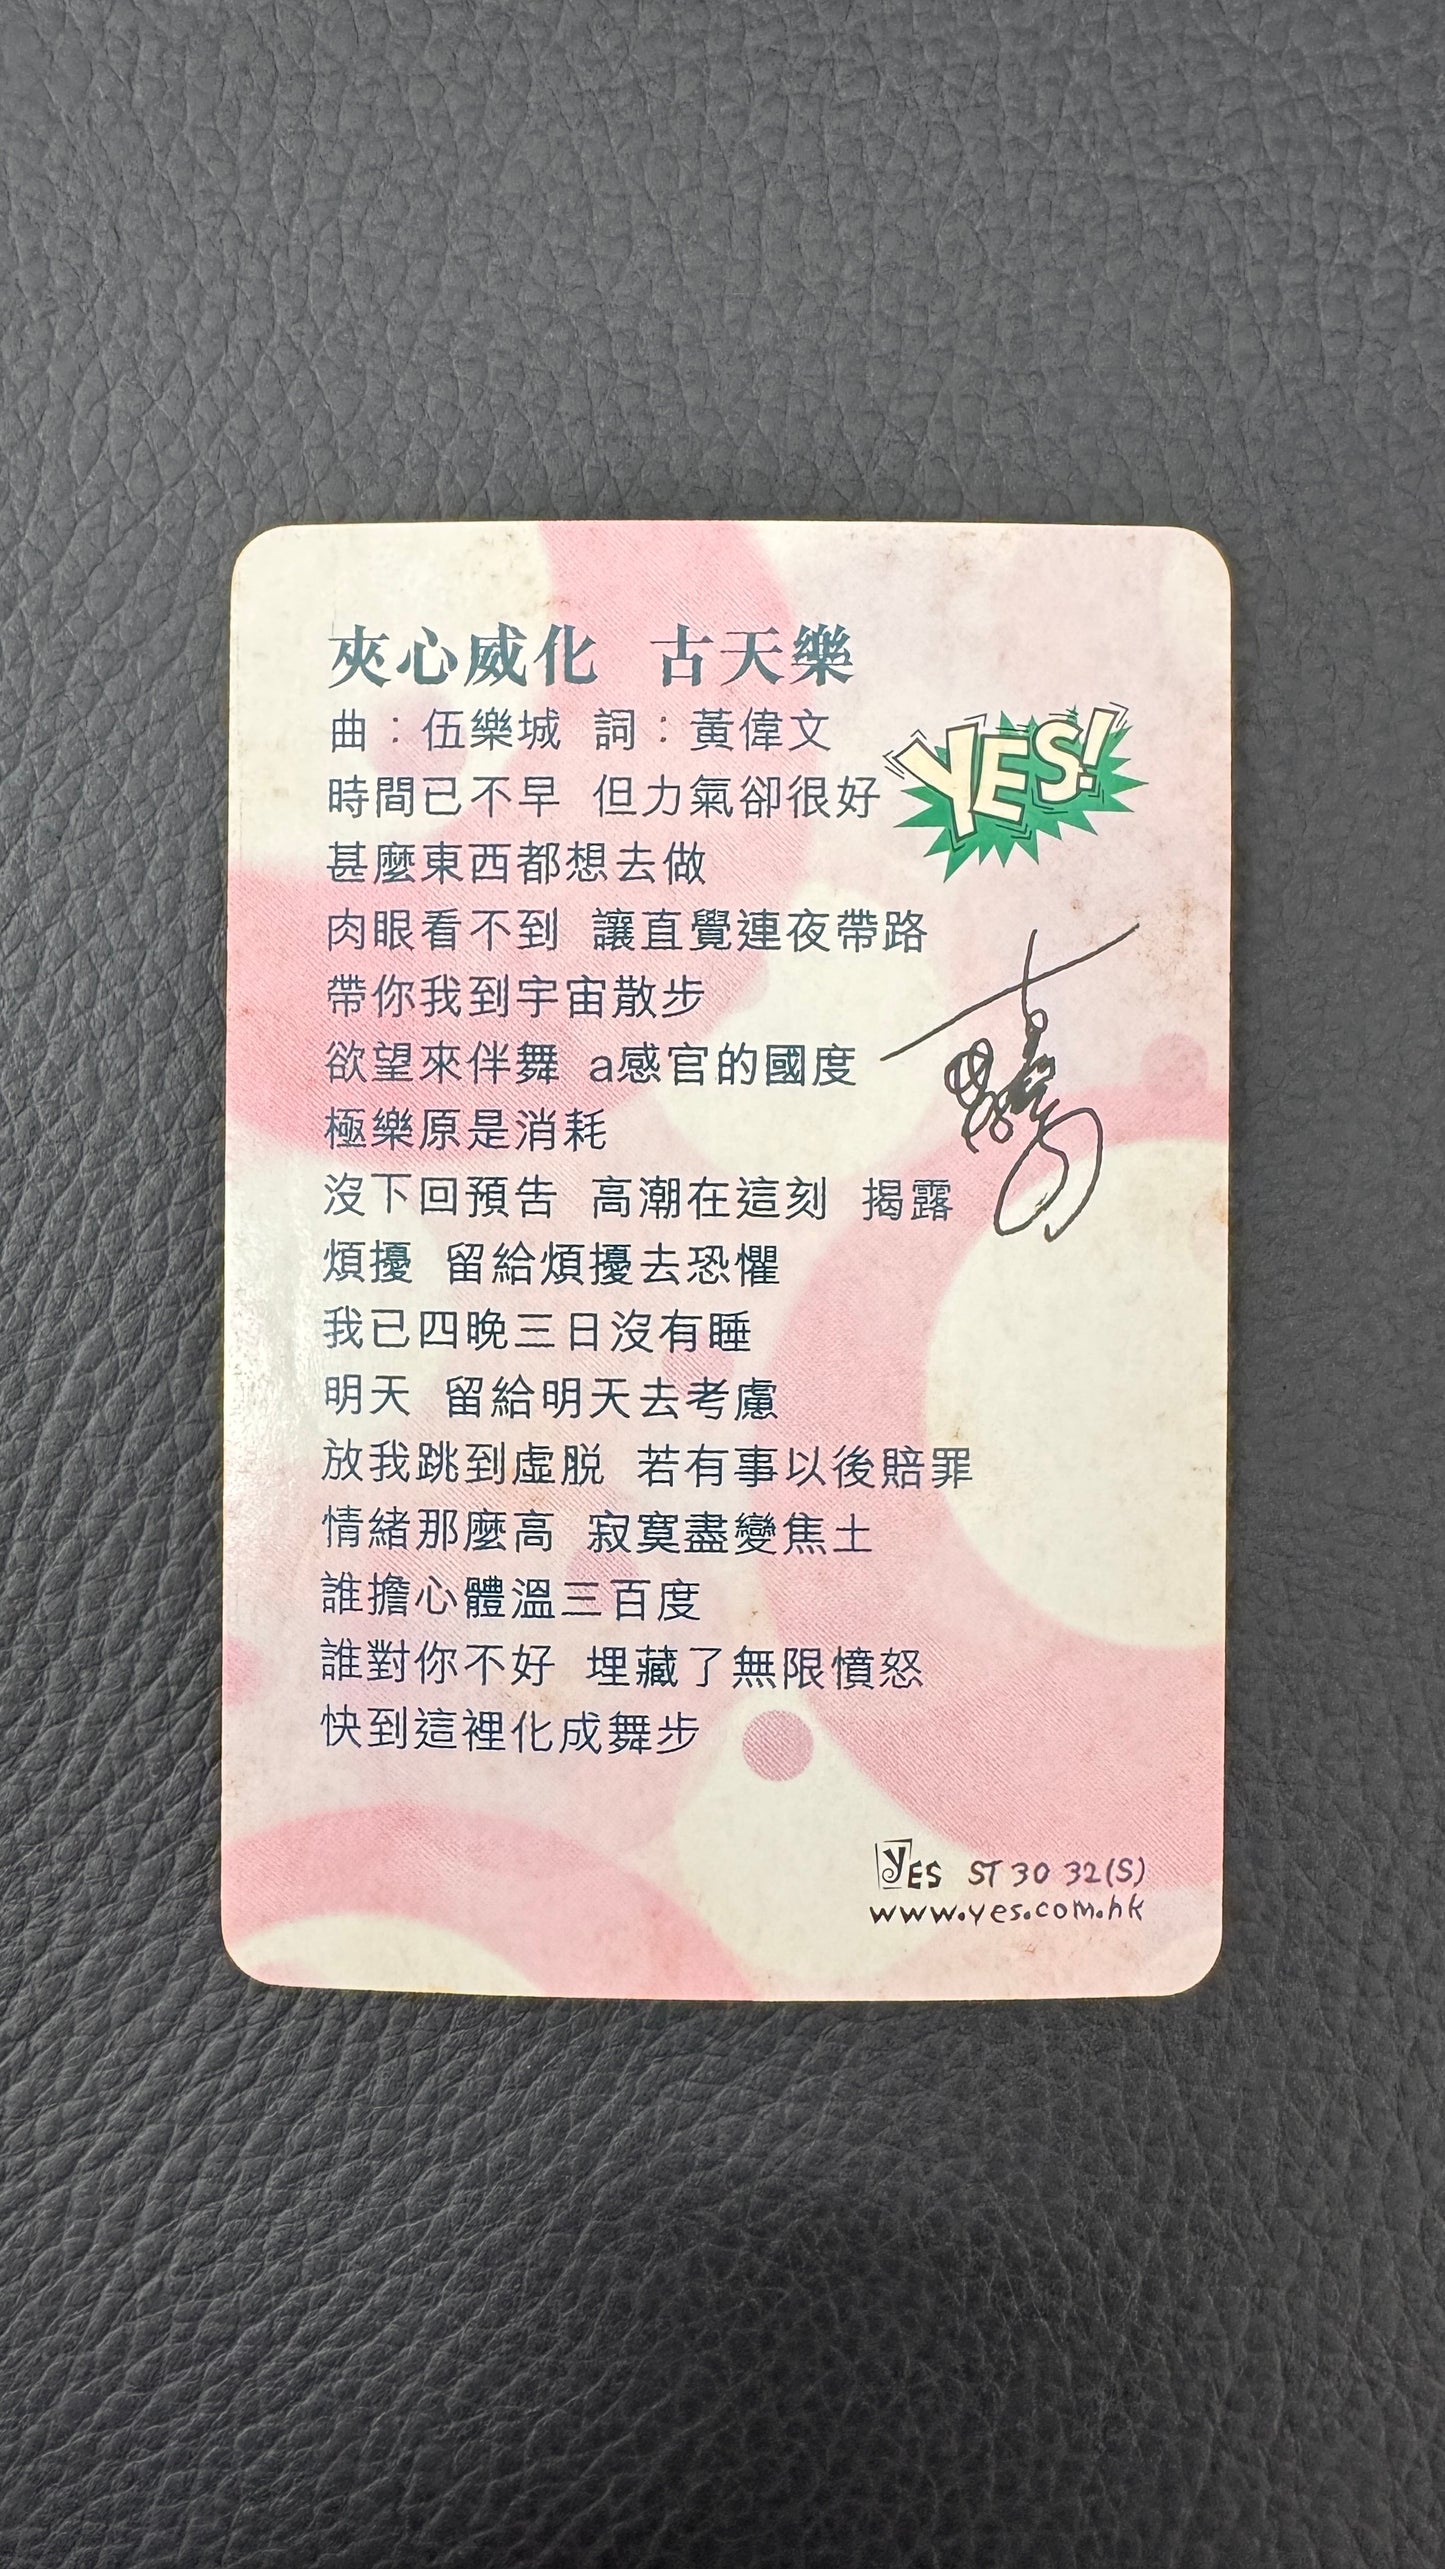 夾心威化 古天樂
曲：伍樂城 詞：黃偉文
YES!
時間已不早 但力氣卻很好
甚麼東西都想去做
肉眼看不到 讓直覺連夜帶路
帶你我到宇宙散步
欲望來伴舞 a感官的國度
極樂原是消耗
沒下回預告 高潮在這刻 揭露
煩擾 留給煩擾去恐懼
我已四晚三日沒有睡
明天 留給明天去考慮
放我跳到虛脫 若有事以後賠罪
情緒那麼高 寂寞盡變焦土
誰擔心體溫三百度
誰對你不好 埋藏了無限憤怒
快到這裡化成舞步
YES ST 30 32(S)
www.yes.com.hk